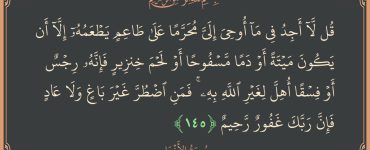 قُل لَّآ أَجِدُ فِى مَآ أُوحِىَ إِلَىَّ مُحَرَّمًا عَلَىٰ طَاعِمٍ يَطْعَمُهُۥٓ إِلَّآ أَن
يَكُونَ مَيْتَةً أَوْ دَمًا مَّسْفُوحًا أَوْ لَحْمَ خِنزِيرٍ فَإِنَّهُۥ رِجْسٌ
أَوْ فِسْقًا أُهِلَّ لِغَيْرِ ٱللَّهِ بِهِۦ ۚ فَمَنِ ٱضْطُرَّ غَيْرَ بَاغٍ وَلَا عَادٍ
فَإِنَّ رَبَّكَ غَفُورٌ رَّحِيمٌ ﴿١٤٥﴾